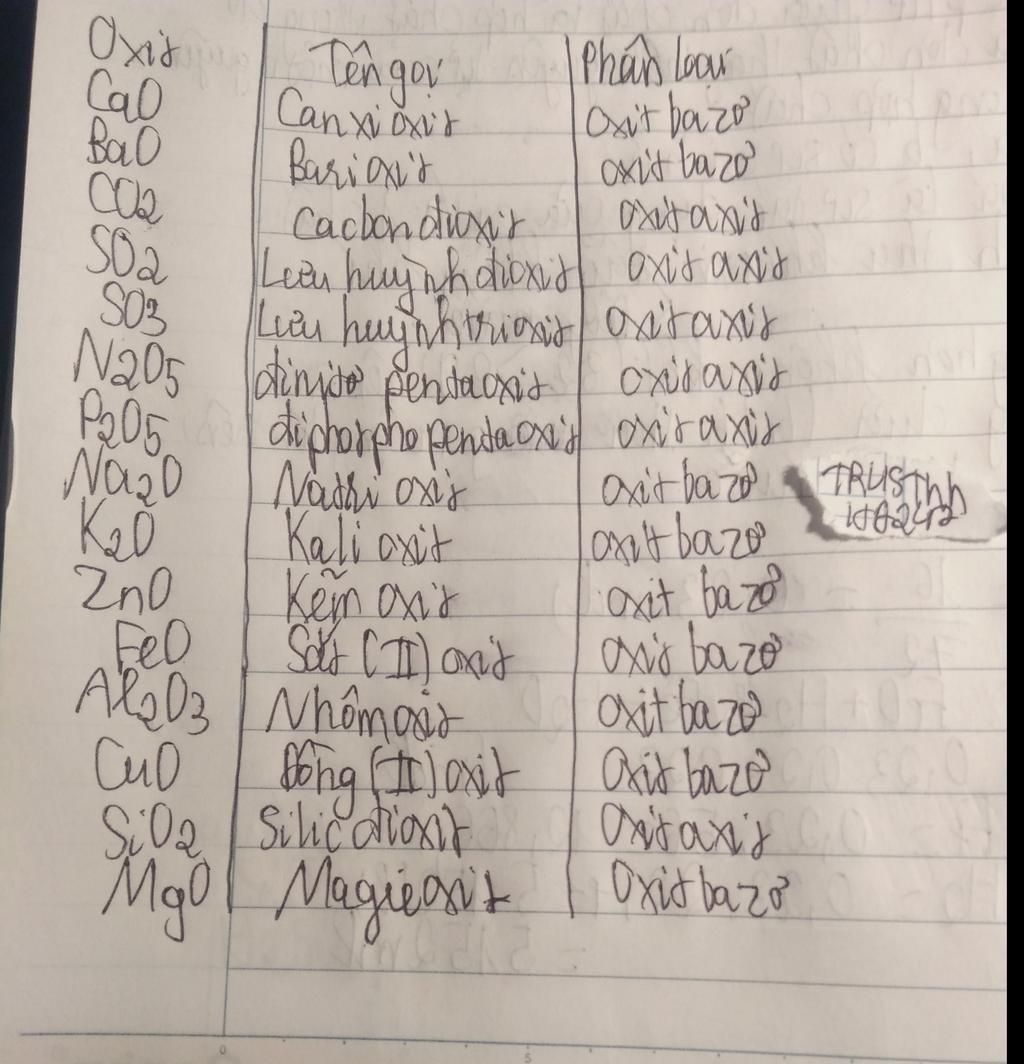 Oxit Tên gọi Phân loại
CaO Canxi oxit oxit bazơ
BaO Bari oxit oxit bazơ
CO2 Cacbon đioxit oxit axit
SO2 Lưu huỳnh đioxit oxit axit
SO3 Lưu huỳnh trioxit oxit axit
N2O5 đinitơ pentaoxit oxit axit
P2O5 điphotpho pentaoxit oxit axit
Na2O Natri oxit oxit bazơ
K2O Kali oxit oxit bazơ
ZnO Kẽm oxit oxit bazơ
FeO Sắt (II) oxit oxit bazơ
Al2O3 Nhôm oxit oxit bazơ
CuO Đồng (II) oxit oxit bazơ
SiO2 Silic đioxit oxit axit
MgO Magie oxit oxit bazơ
0 5